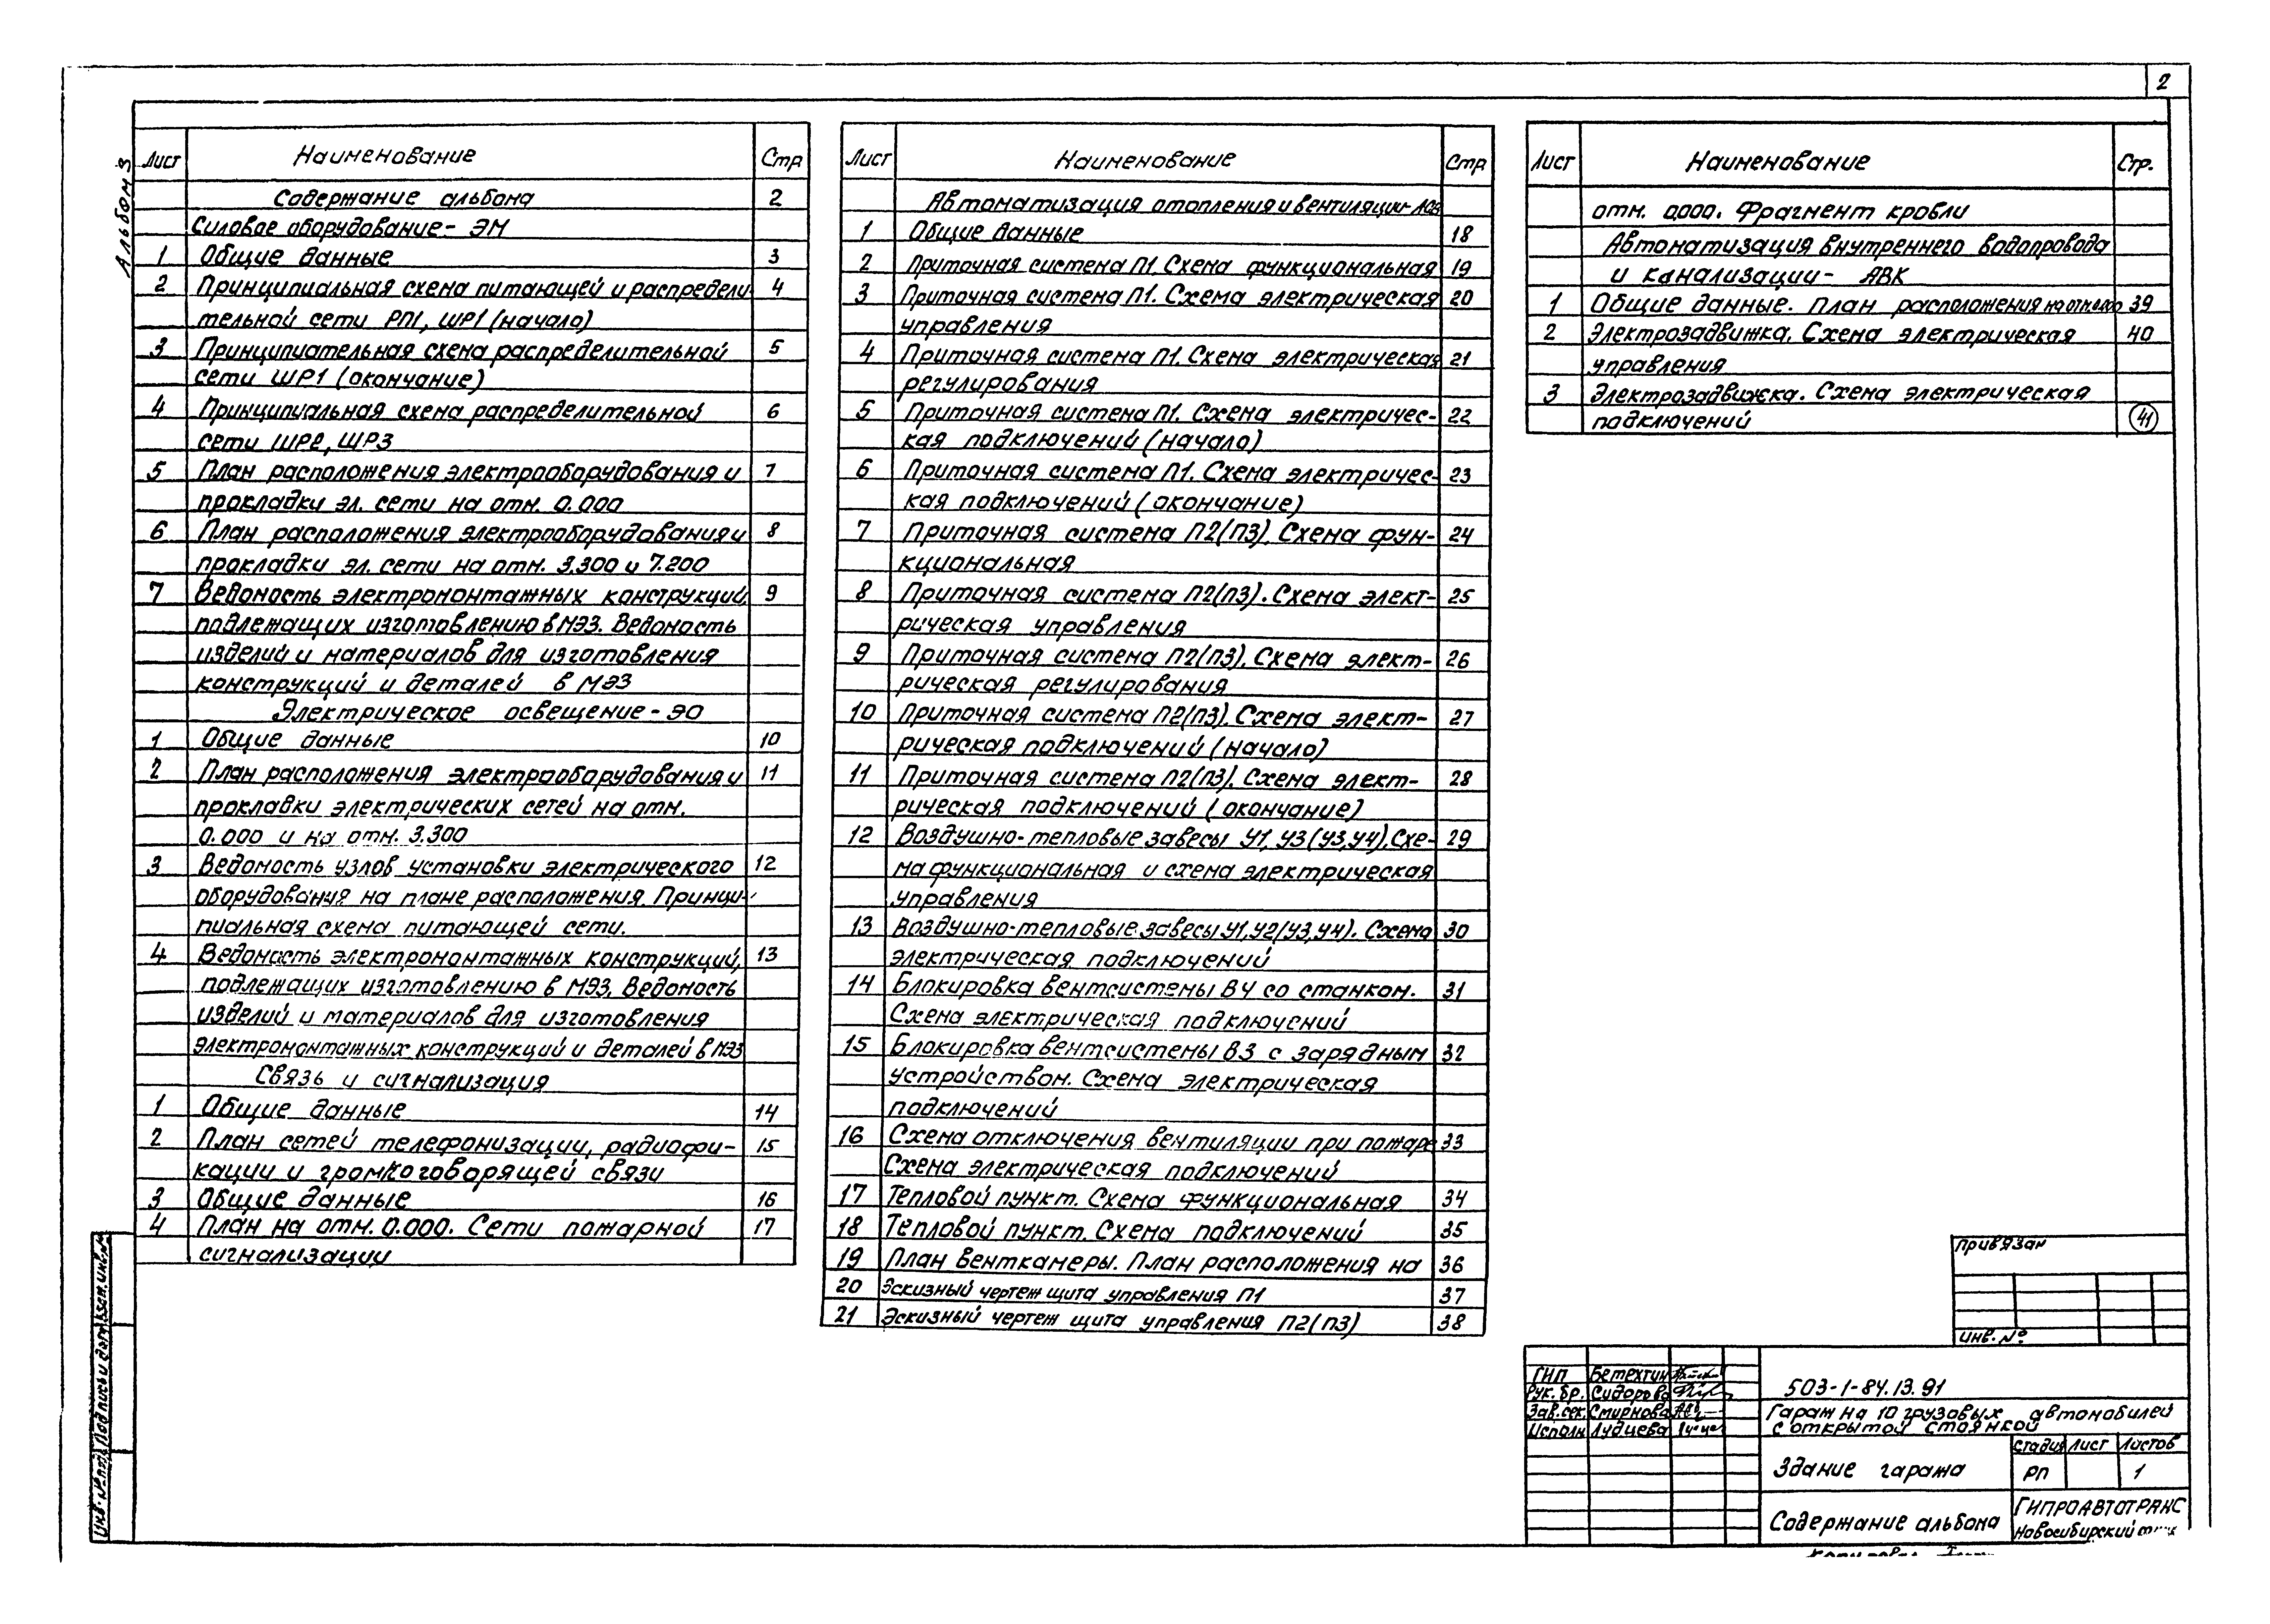 2
Альбом 3
Лист Наименование Стр
Содержание альбома 2
Силовое оборудование - ЭМ
1 Общие данные 3
2 Принципиальная схема питающей и распредели 4
тельной сети РП1, ШР1 (начало)
3 Принципиательная схема распределительной 5
сети ШР1 (окончание)
4 Принципиальная схема распределительной 6
сети ШР2, ШР3
5 План расположения электрооборудования и 7
прокладки эл. сети на отм. 0.000
6 План расположения электрооборудования и 8
прокладки эл. сети на отм. 3.300 и 7.200
7 Ведомость электромонтажных конструкций, 9
подлежащих изготовлению в МЭЗ. Ведомость
изделий и материалов для изготовления
конструкций и деталей в МЭЗ
Электрическое освещение - ЭО
1 Общие данные 10
2 План расположения электрооборудования и 11
прокладки электрических сетей на отм.
0.000 и на отм. 3.300
3 Ведомость узлов установки электрического 12
оборудования на плане расположения. Принци-
пиальная схема питающей сети.
4 Ведомость электромонтажных конструкций, 13
подлежащих изготовлению в МЭЗ. Ведомость
изделий и материалов для изготовления
электромонтажных конструкций и деталей в МЭЗ
Связь и сигнализация
1 Общие данные 14
2 План сетей телефонизации, радиофи- 15
кации и громкоговорящей связи
3 Общие данные 16
4 План на отм. 0.000. Сети пожарной 17
сигнализации
Лист Наименование Стр
Автоматизация отопления и вентиляции-
1 Общие данные 18
2 Приточная система П1. Схема функциональная 19
3 Приточная система П1. Схема электрическая 20
управления
4 Приточная система П1. Схема электрическая 21
регулирования
5 Приточная система П1. Схема электричес- 22
кая подключений (начало)
6 Приточная система П1. Схема электричес- 23
кая подключений (окончание)
7 Приточная система П2(П3). Схема фун- 24
кциональная
8 Приточная система П2(П3). Схема элект- 25
рическая управления
9 Приточная система П2(П3). Схема элект- 26
рическая регулирования
10 Приточная система П2(П3). Схема элект- 27
рическая подключений (начало)
11 Приточная система П2(П3). Схема элект- 28
рическая подключений (окончание)
12 Воздушно-тепловые завесы У1, У3 (У3, У4). Схе- 29
ма функциональная и схема электрическая
управления
13 Воздушно-тепловые завесы У1, У2 (У3, У4). Схема 30
электрическая подключений
14 Блокировка вентсистемы В4 со станком. 31
Схема электрическая подключений
15 Блокировка вентсистемы В3 с зарядным 32
устройством. Схема электрическая
подключений
16 Схема отключения вентиляции при пожаре 33
Схема электрическая подключений
17 Тепловой пункт. Схема функциональная 34
18 Тепловой пункт. Схема подключений 35
19 План венткамеры. План расположения на 36
20 Эскизный чертеж щита управления П1 37
21 Эскизный чертеж щита управления П2(П3) 38
Лист Наименование Стр.
отм. 0,000. Фрагмент кровли
Автоматизация внутреннего водопровода
и канализации - АВК
1 Общие данные. План расположения на отм. 0.000 39
2 Электрозадвижка. Схема электрическая 40
управления
3 Электрозадвижка. Схема электрическая
подключений 41
Привязан
инв. №
ГИП Бетехтин
Рук. бр. Сидорова
Зав. сек. Смирнова
Исполн
503-1-84.13.91
Гараж на 10 грузовых автомобилей
с открытой стоянкой
Здание гаража
Стадия Лист Листов
РП 1
Содержание альбома
ГИПРОАВТОТРАНС
Новосибирский
Инв. № подл. Подпись и дата Взам. инв. №